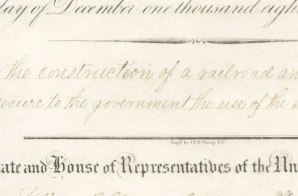 day of December one thousand eigh
the construction of a railroad an
secure to the government the use of the
tate and House of Representatives of the Un